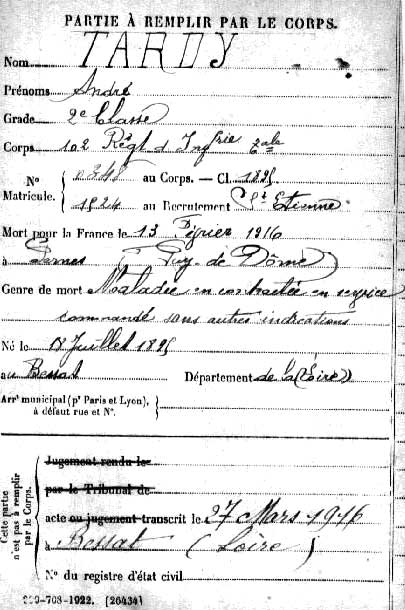 PARTIE À REMPLIR PAR LE CORPS.
Nom TARDY
Prénoms André
Grade 2e Classe
Corps 102 Régt d'Infrie Zale
N° Matricule. { au Corps. — Cl. 1895
1924 au Recrutement St Etienne
Mort pour la France le 13 Février 1916
à (Puy-de Dôme)
Genre de mort Maladie contractée en service
commandé sans autres indications
Né le Juillet 1895
au Bessat Département de la (Loire)
Arrt municipal (pr Paris et Lyon), à défaut rue et N°. {
Cette partie n'est pas à remplir par le Corps. {
Jugement rendu le
par le Tribunal de
acte ou jugement transcrit le 27 Mars 1916
à Bessat (Loire)
N° du registre d'état civil
708-1922. [26434]